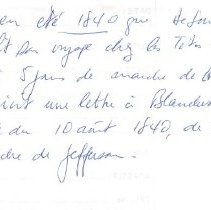 en été 1840 que de Sm
fit son voyage chez les Têtes
5 jours de marche de
une lettre à Blandu
du 10 août 1840, de
de Jefferson.